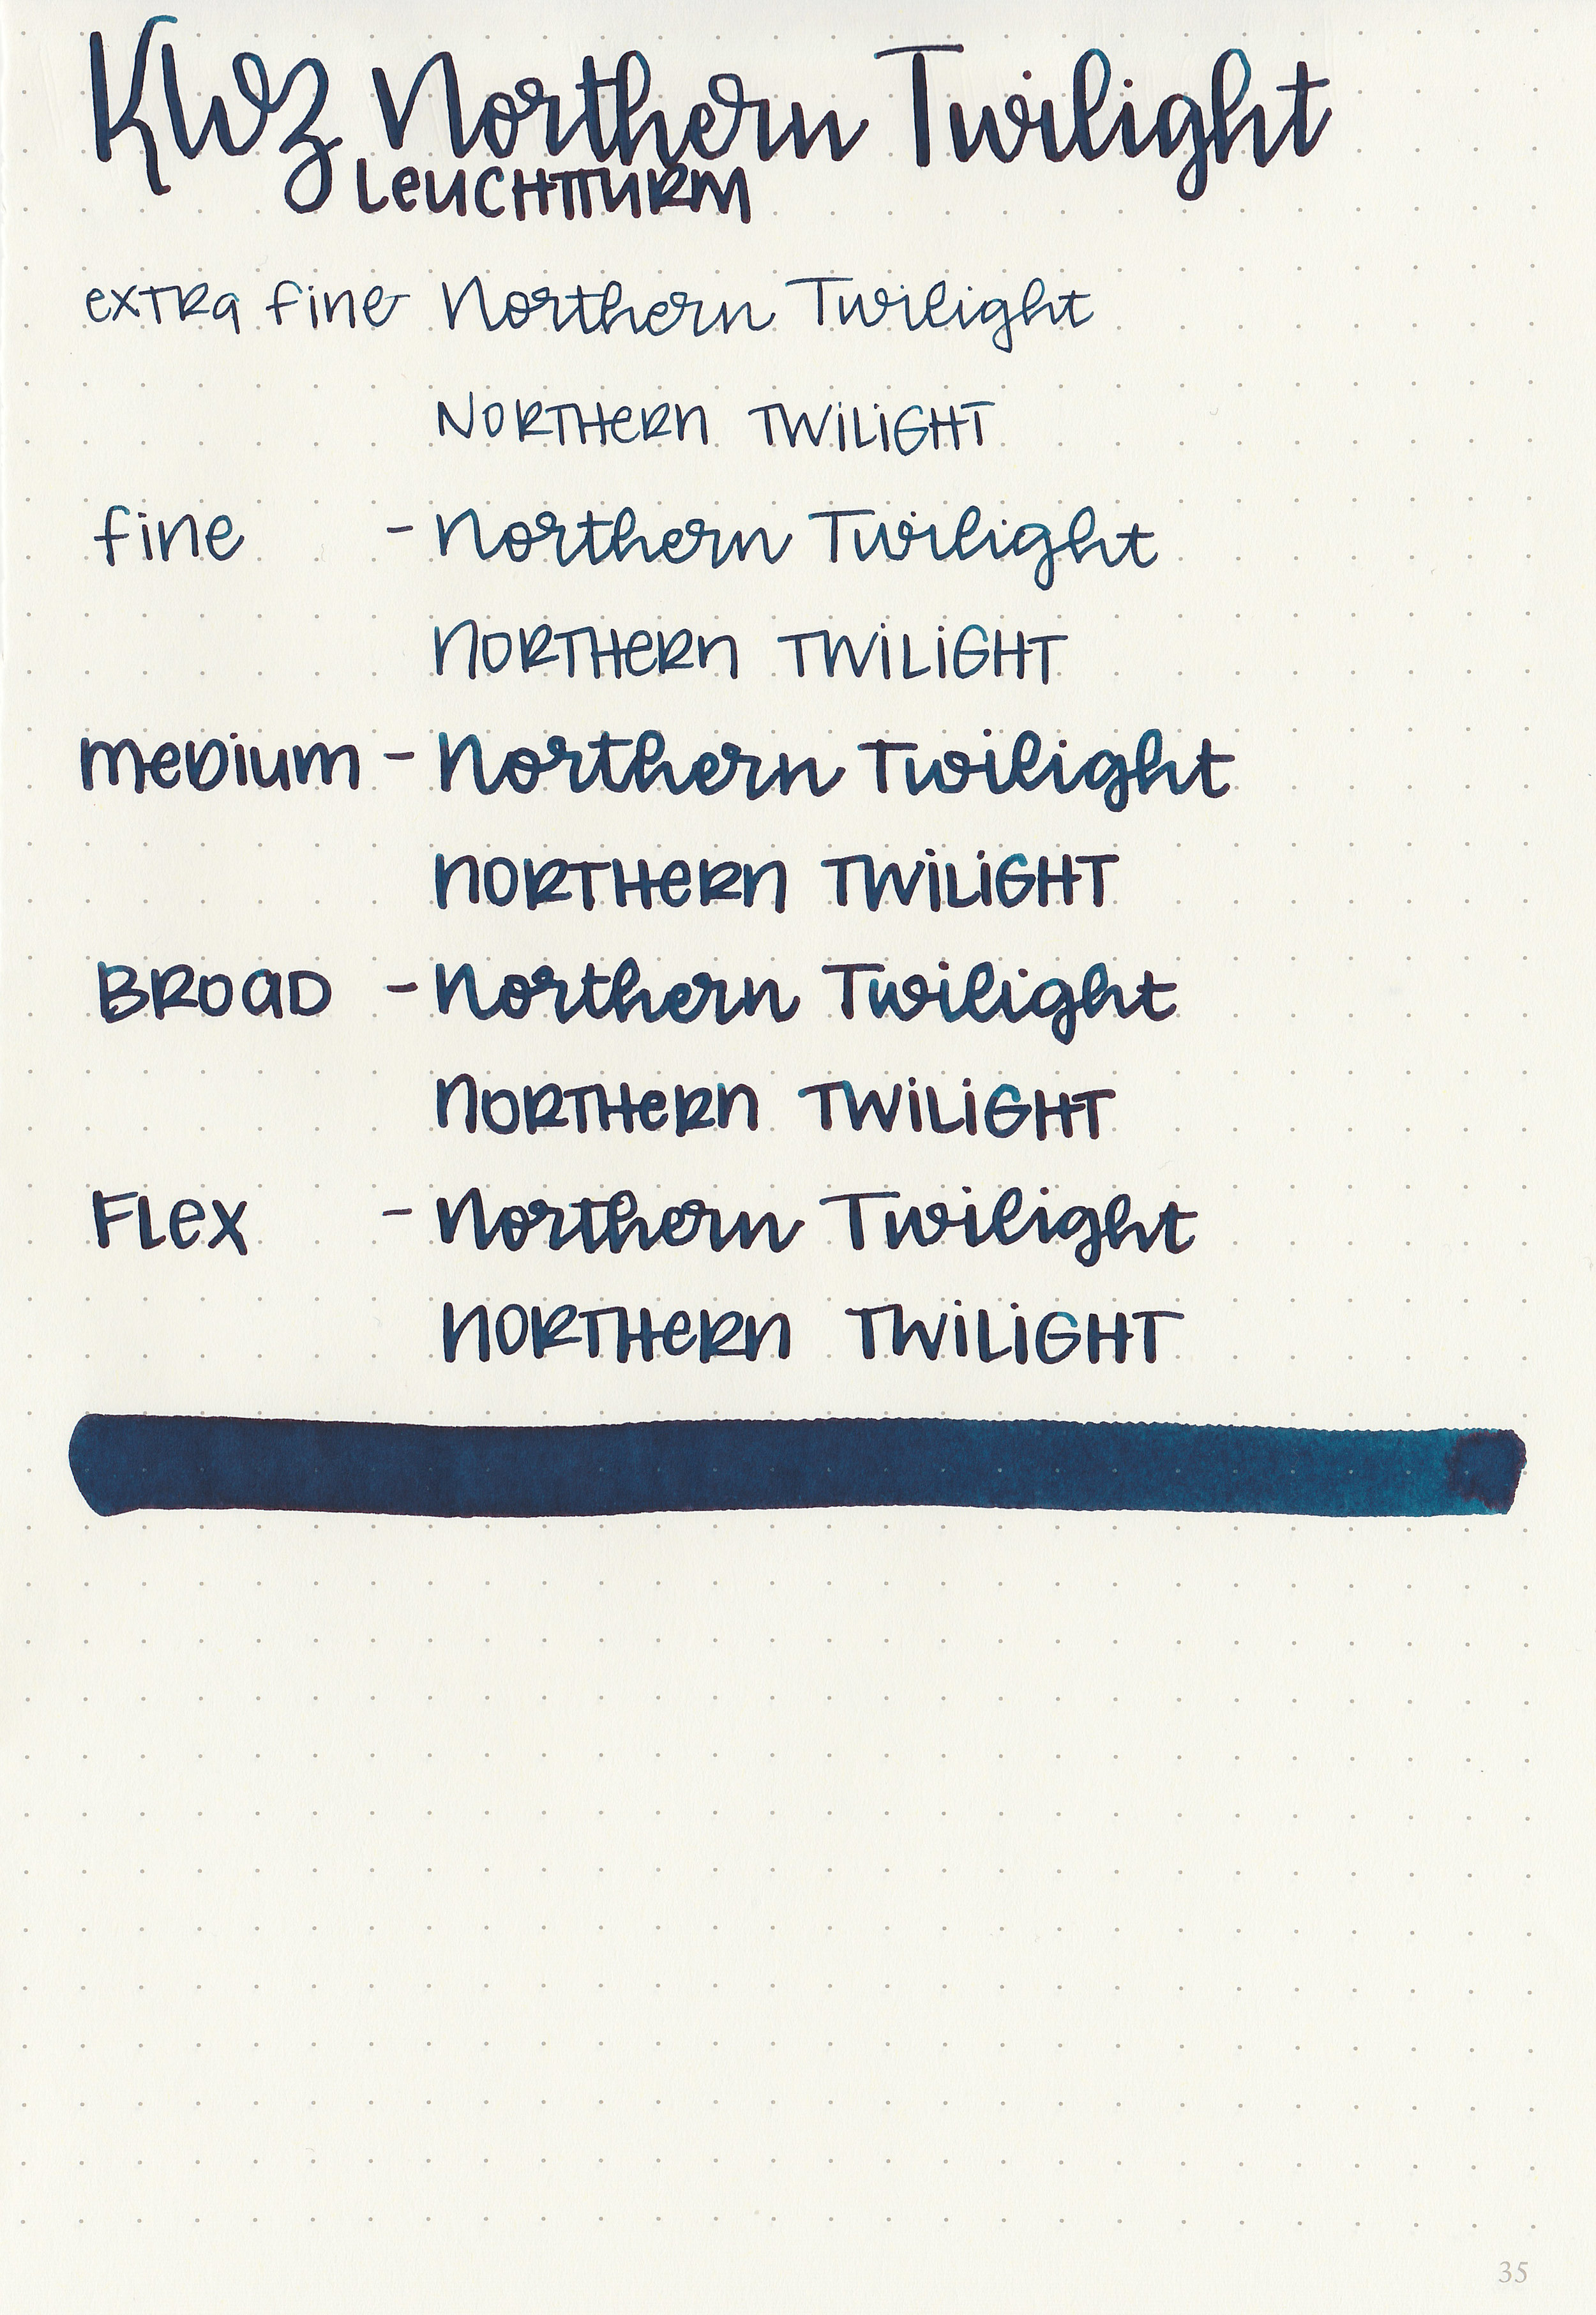 KWZ Northern Twilight
LEUCHTTURM
extra fine Northern Twilight
NORTHERN TWILIGHT
fine - Northern Twilight
NORTHERN TWILIGHT
medium - Northern Twilight
NORTHERN TWILIGHT
BROAD - Northern Twilight
NORTHERN TWILIGHT
Flex - Northern Twilight
NORTHERN TWILIGHT
35